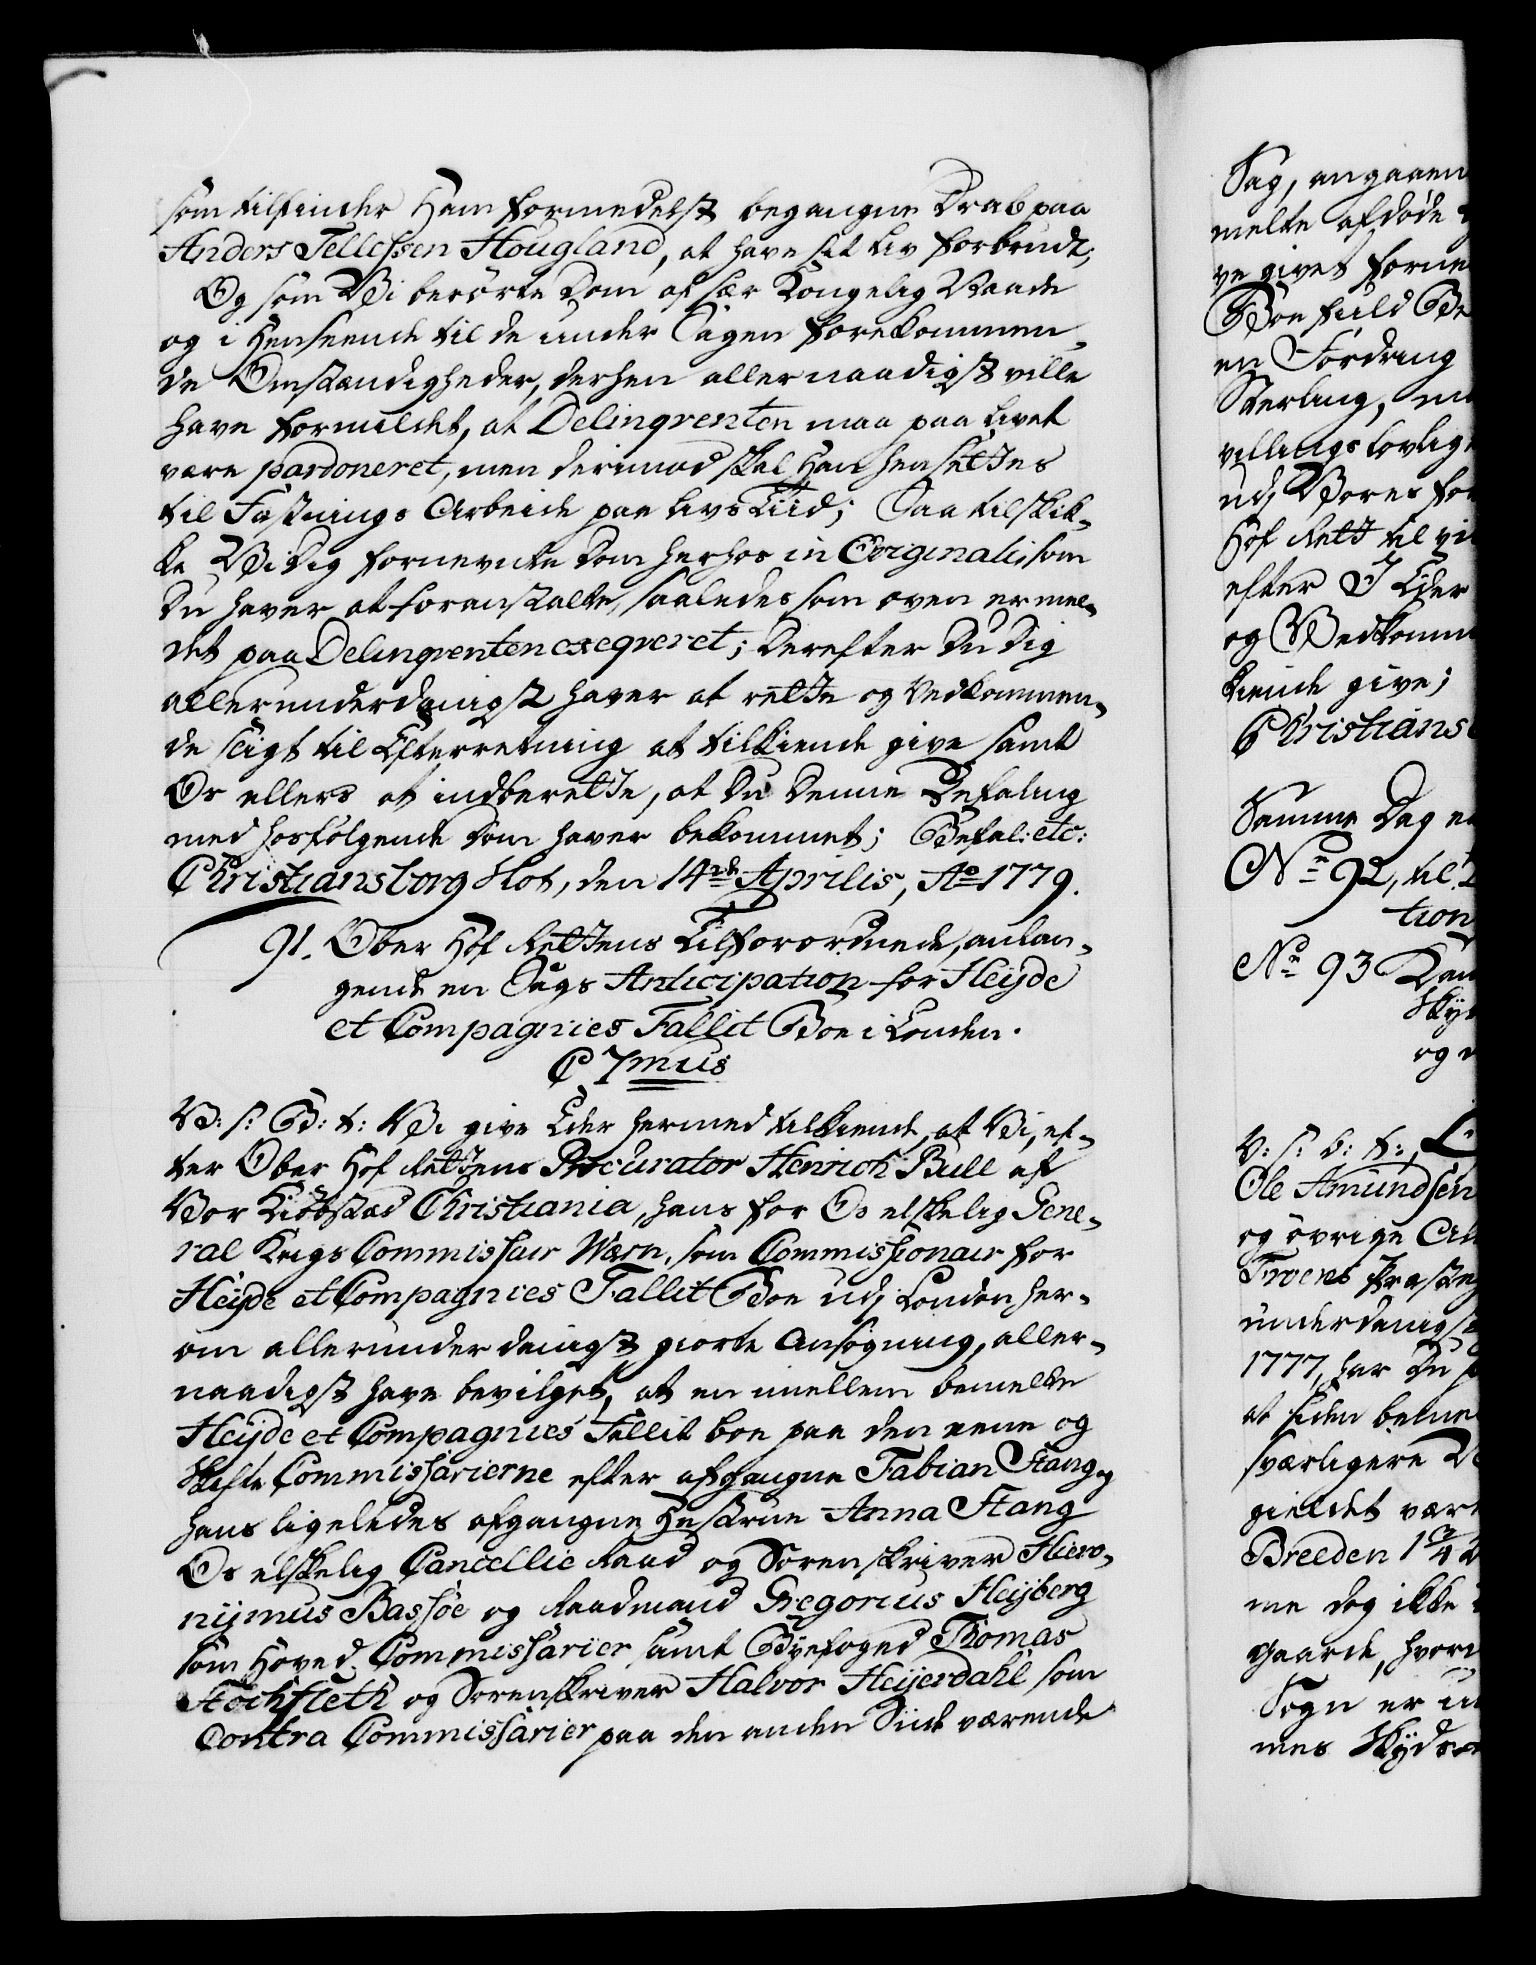 som tilfinder Ham formedelst begangne Drab paa
Anders Tellefsen Hougland, at have sit Liv forbrudt;
Og som Vi berørte Dom af sær Kongelig Naade
og i Henseende til de under Sagen forekommen-
de Omstændigheder, derhen allernaadigst ville
have formildet, at Delinqventen maa paa Livet
være pardoneret, men derimod skal Han hensettes
til Fæstnings Arbeide paa Livs Tiid; Saa tilskik-
ke Vi Dig fornevnte Dom herhos in Originali, som
Du haver at foranstalte, saaledes som oven er mel-
det paa Delinqventen exeqveret; Derefter Du Dig
allerunderdanigst haver at rette og Vedkommen-
de sligt til Efterretning at tilkiende give samt
Os ellers at indberette, at Du Denne Befaling
med hosfølgende Dom haver bekommet; Befal: etc:
Christiansborg Slot, den 14de Aprilis, Ao 1779.
91. Ober Hof Rettens Tilforordnede, anlan-
gende en Sags Anticipation for Heyde
et Compagnies Fallit Boe i London.
C 7mus
V: s: G: t: Vi give Eder hermed tilkiende, at Vi, ef-
ter Ober Hof Rettens Procurator Henrich Bull af
Vor Kiøbstad Christiania, hans for Os elskelig Gene-
ral Krigs Commissair Wærn, som Commissionair for
Heyde et Compagnies Fallit Boe udj London her-
om allerunderdanigst giorte Ansøgning, aller-
naadigst have bevilget, at en imellem bemelte
Heyde et Compagnies Fallit boe paa den eene og
Skifte Commissarierne efter afgangne Fabian Stang og
hans ligeledes afgangne Hustrue Anna Stang
Os elskelig Cancellie Raad og Sorenskriver Hiero-
nijmus Bassøe og Raadmand Gregorius Heyberg
som Hoved Commissarier samt Byefoged Thomas
Stockfleth og Sorenskriver Halvor Heyerdahl som
Contra Commissarier paa den anden Side værende
Sag, angaaen
melte afdøde
ve givet forne
Boe fuld Be
en Fordring
Sterling, m
villings lovlig
udj Vores for
Hof Rett til
efter I Eder
og Vedkomm
kiende give;
Christians
Samme Dag
No 92, til
tion
No 93
og
V: s: G: t:,
Ole Amundsen
og øvrige
underdanigs
1777, har Du
at siden beme
sværligere
gieldet vær
Breeden 1¼
me dog ikke
gaarde, hvor
Sogn er
mes Skyds